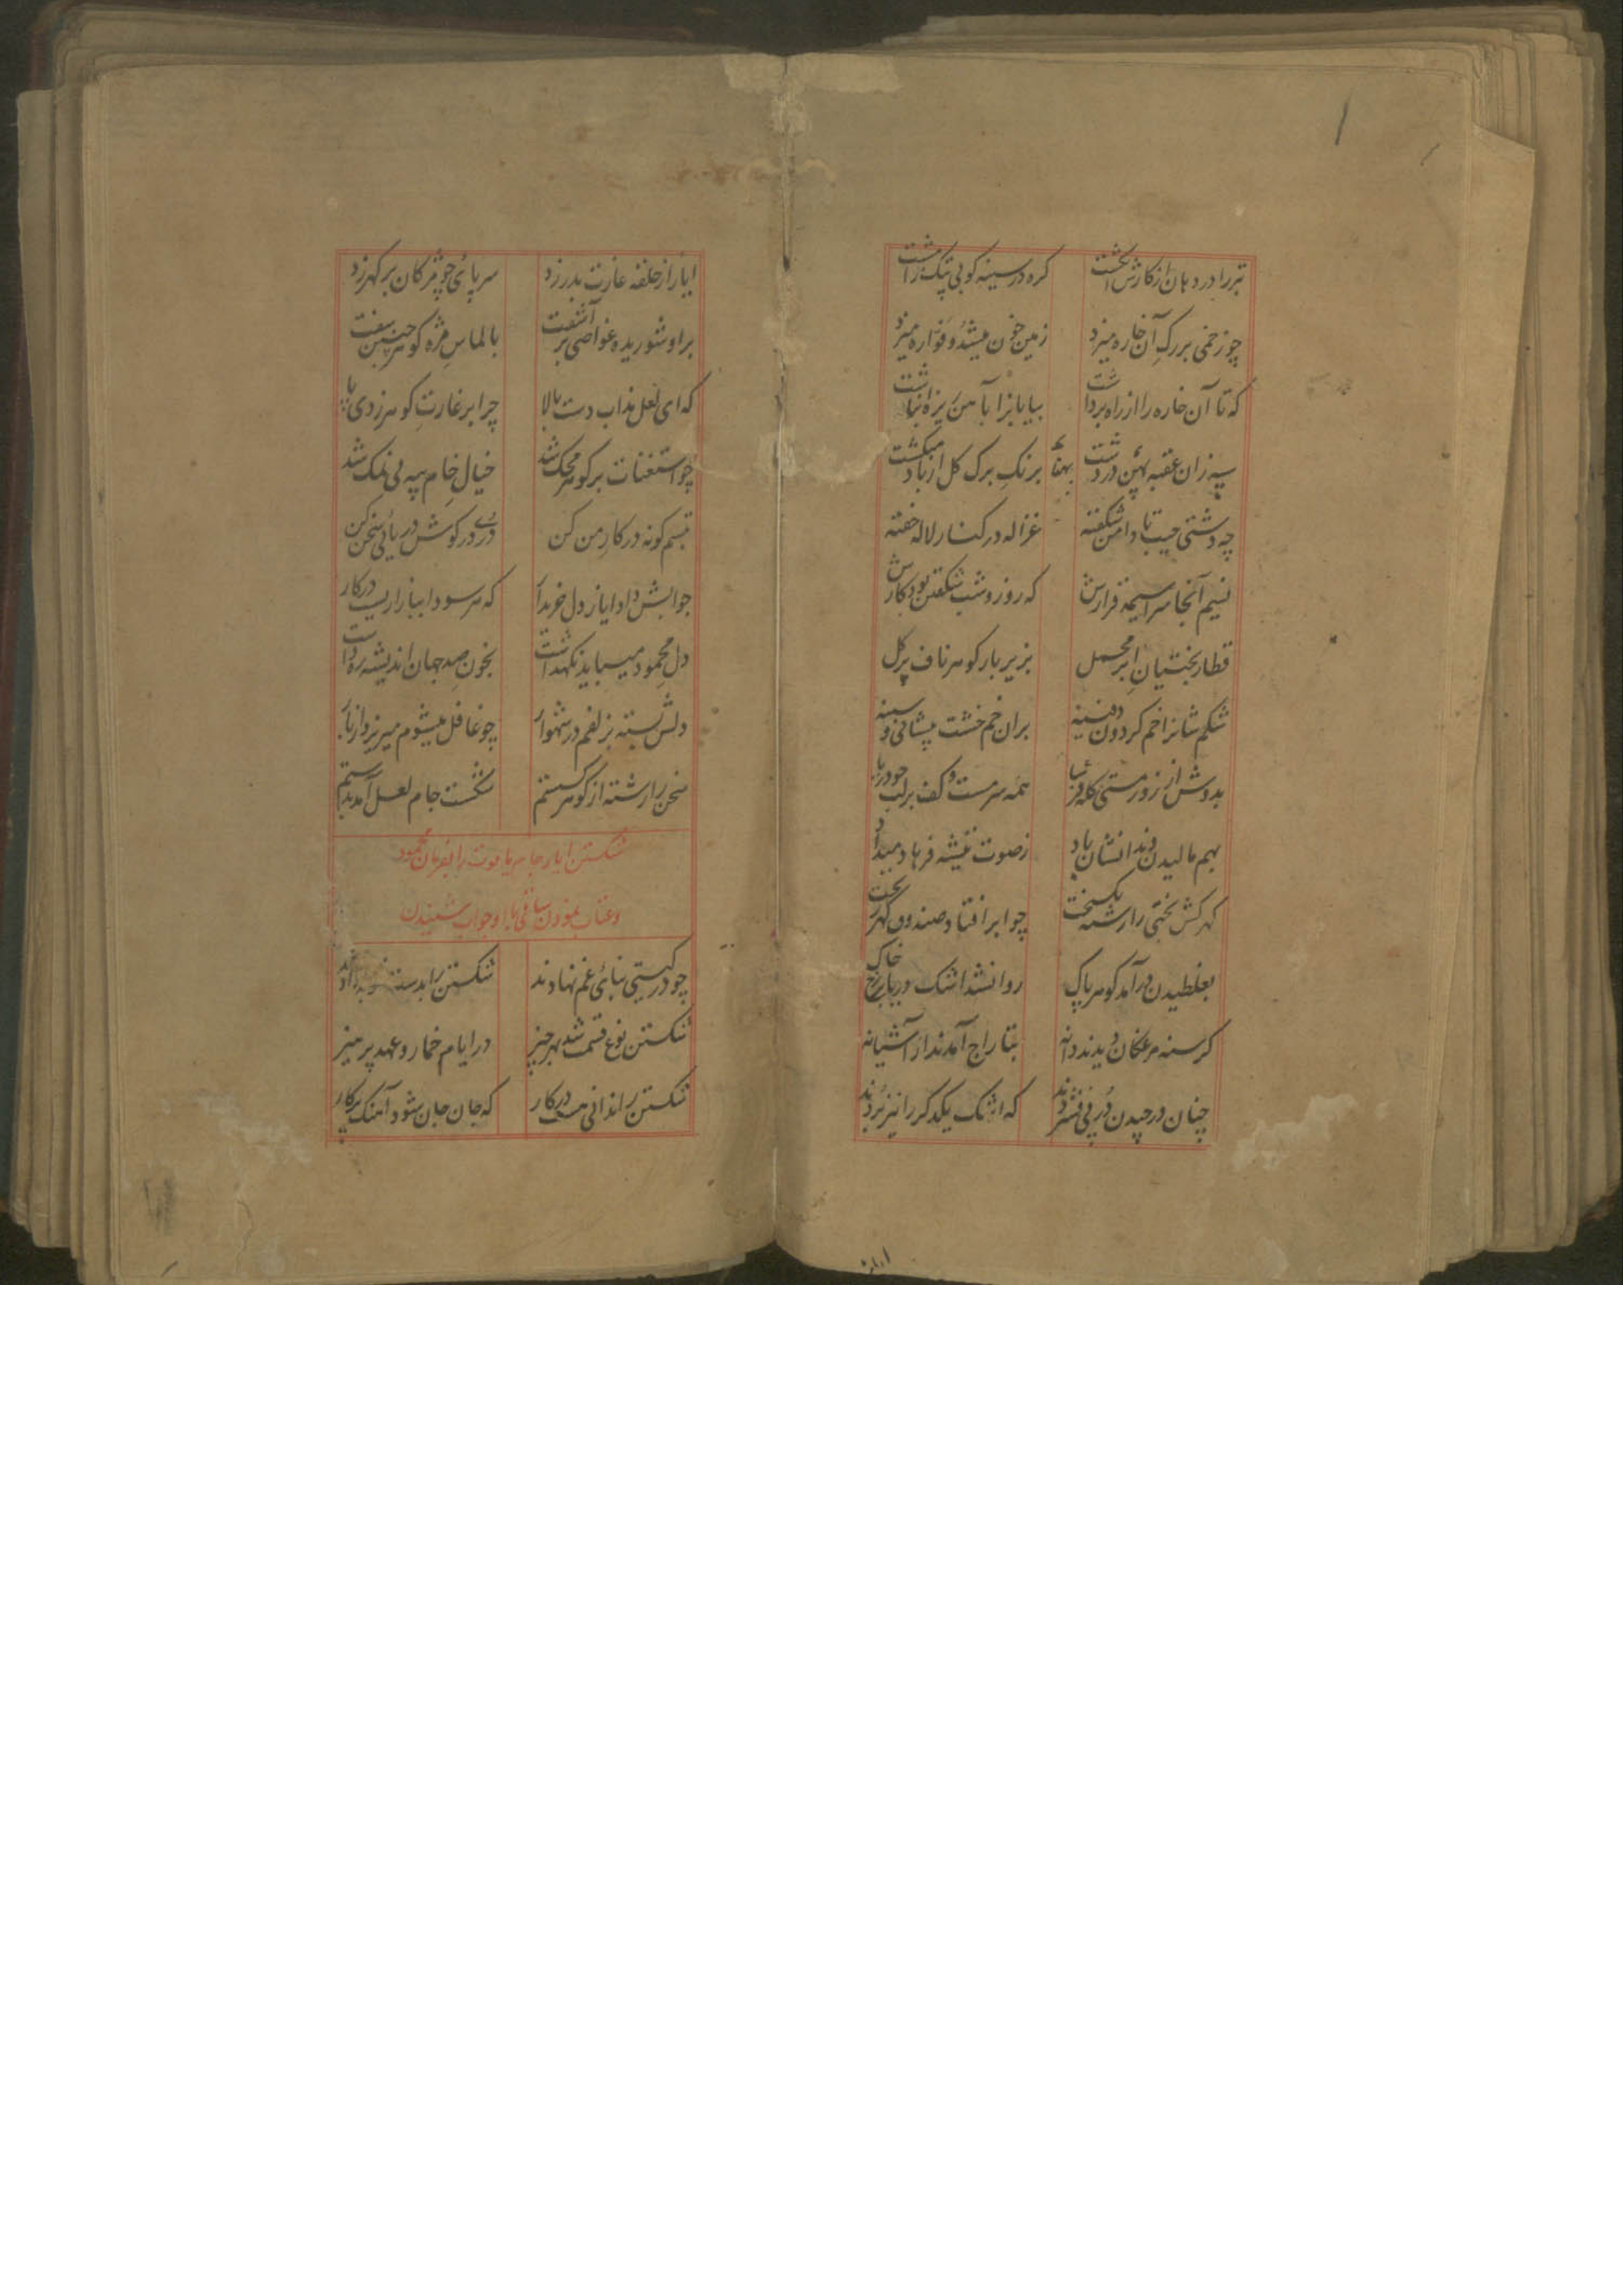 تبر را در دهان از کارش انگشت گره در سینه کوبی پتک را مشت
چو زخمی بر رگ آن خاره میزد زمین خون میشد و فواره میزد
که تا آن خاره را از راه برداشت بیابانرا بآهن ریزه انباشت
سیه زان عقبه پهن در دشت برنک برک کل از باد میکشت
چه دشتی جیب تا دامن شکفته غزاله در کنار لاله خفته
نسیم آنجا سراسیمه قرارش که روز و شب شکفتن بود کارش
قطار بختیان ابر محمل بزیر بار کوهر ناف پر کل
شکم شانرا خم کردون دفینه بران خم خشت پیشانی و سینه
بدوش از زور مستی همه سرمست و کف بر لب چو دریا
بهم مالیدن دندانشان یاد ز صوت تیشه فرهاد میداد
کهرکش بختی را رشته بکسیخت چو ابر افتاد صندوق کهر ریخت
بغلطیدن درآمد کوهر پاک روانشد اشک دریا بر رخ خاک
کرسنه مرغکان دیدند دانه بتاراج آمدند از آشیانه
چنان در چیدن در پی فشردند که اشک یکدکر را نیز بردند
ایاز از حلقه غارت بدر زد سر پائی چو مژکان بر کهر زد
بر او شوریده غواصی برآشفت بالماس مژه کوهر چنین سفت
که ای لعل مذاب دست بالا چرا بر غارت کوهر زدی پا
چو استغنات بر کوهر محک شد خیال خام پیه بی نمک شد
تبسم کونه در کار من کن دری در کوش دریای سخن کن
جوابش داد ایاز دل خریدار که هر سودا ببازاریست در کار
دل محمود میباید نکهداشت بخون صد جهان اندیشه ره داشت
دلش بسته بزلفم در شهوار چو غافل میشوم میریزد از تار
سخن را رشته از کوهر کسستم شکست جام لعل آمد بدستم
شکستن ایاز جام یاقوت را بفرمان محمود
و عتاب نمودن ساقی با او و جواب شنیدن
چو در کیتی بنای غم نهادند شکستن را بدست دادند
شکستن نوع قسمت شد بهر چیز در ایام خمار و عهد پرهیز
شکستن را ندانی هست در کار که جان جان شود آهنک پرکار